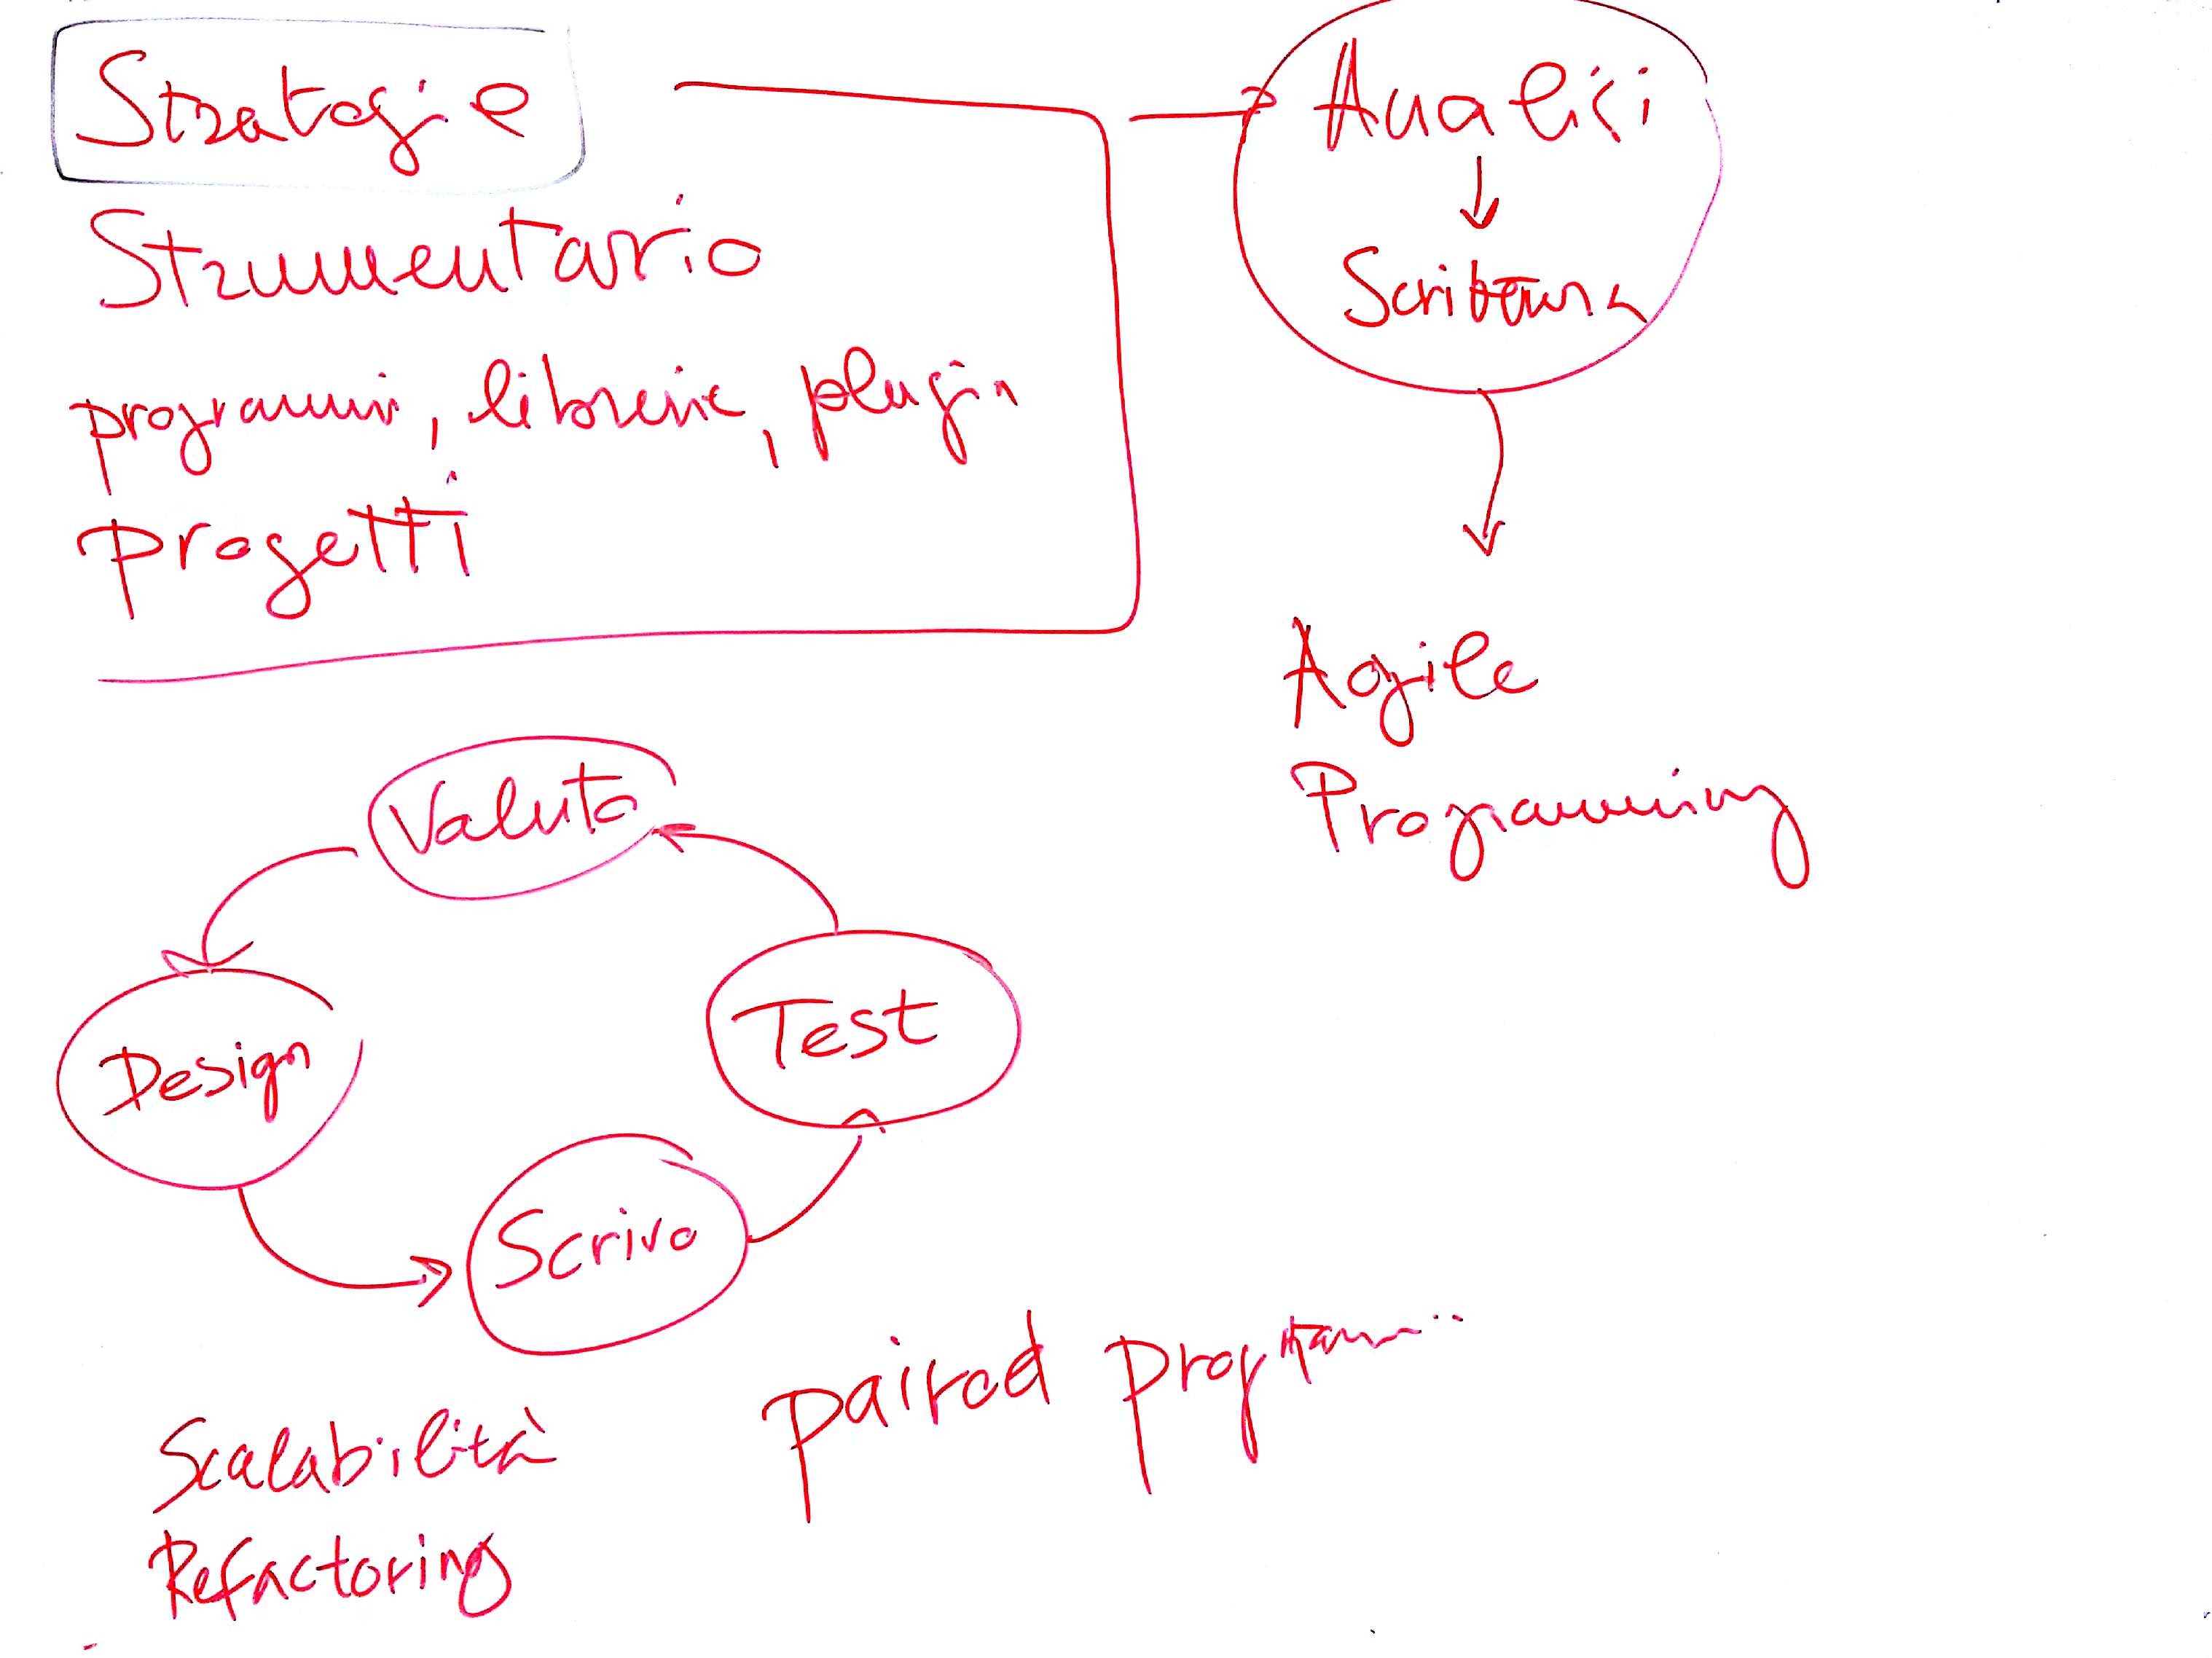 Strategie
Strumentario
programmi, librerie, plugin
Progetti
Analisi
Scrittura
Agile
Programming
Valuto
Design
Test
Scrivo
Scalabilità
Refactoring
paired